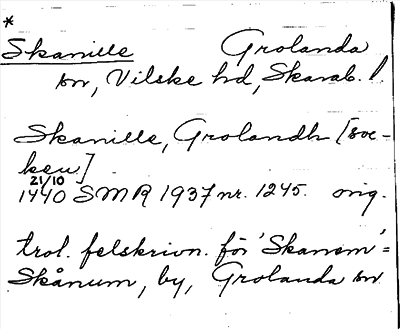 *
Skanille Grolanda
sn, Vilske hd, Skarab. l.
Skanille, Grolandh [soc-
ken]
21/10
1440 SMR 1937 nr. 1245. orig.
trol. felskrivn. för 'Skanom' =
Skånum, by, Grolanda sn